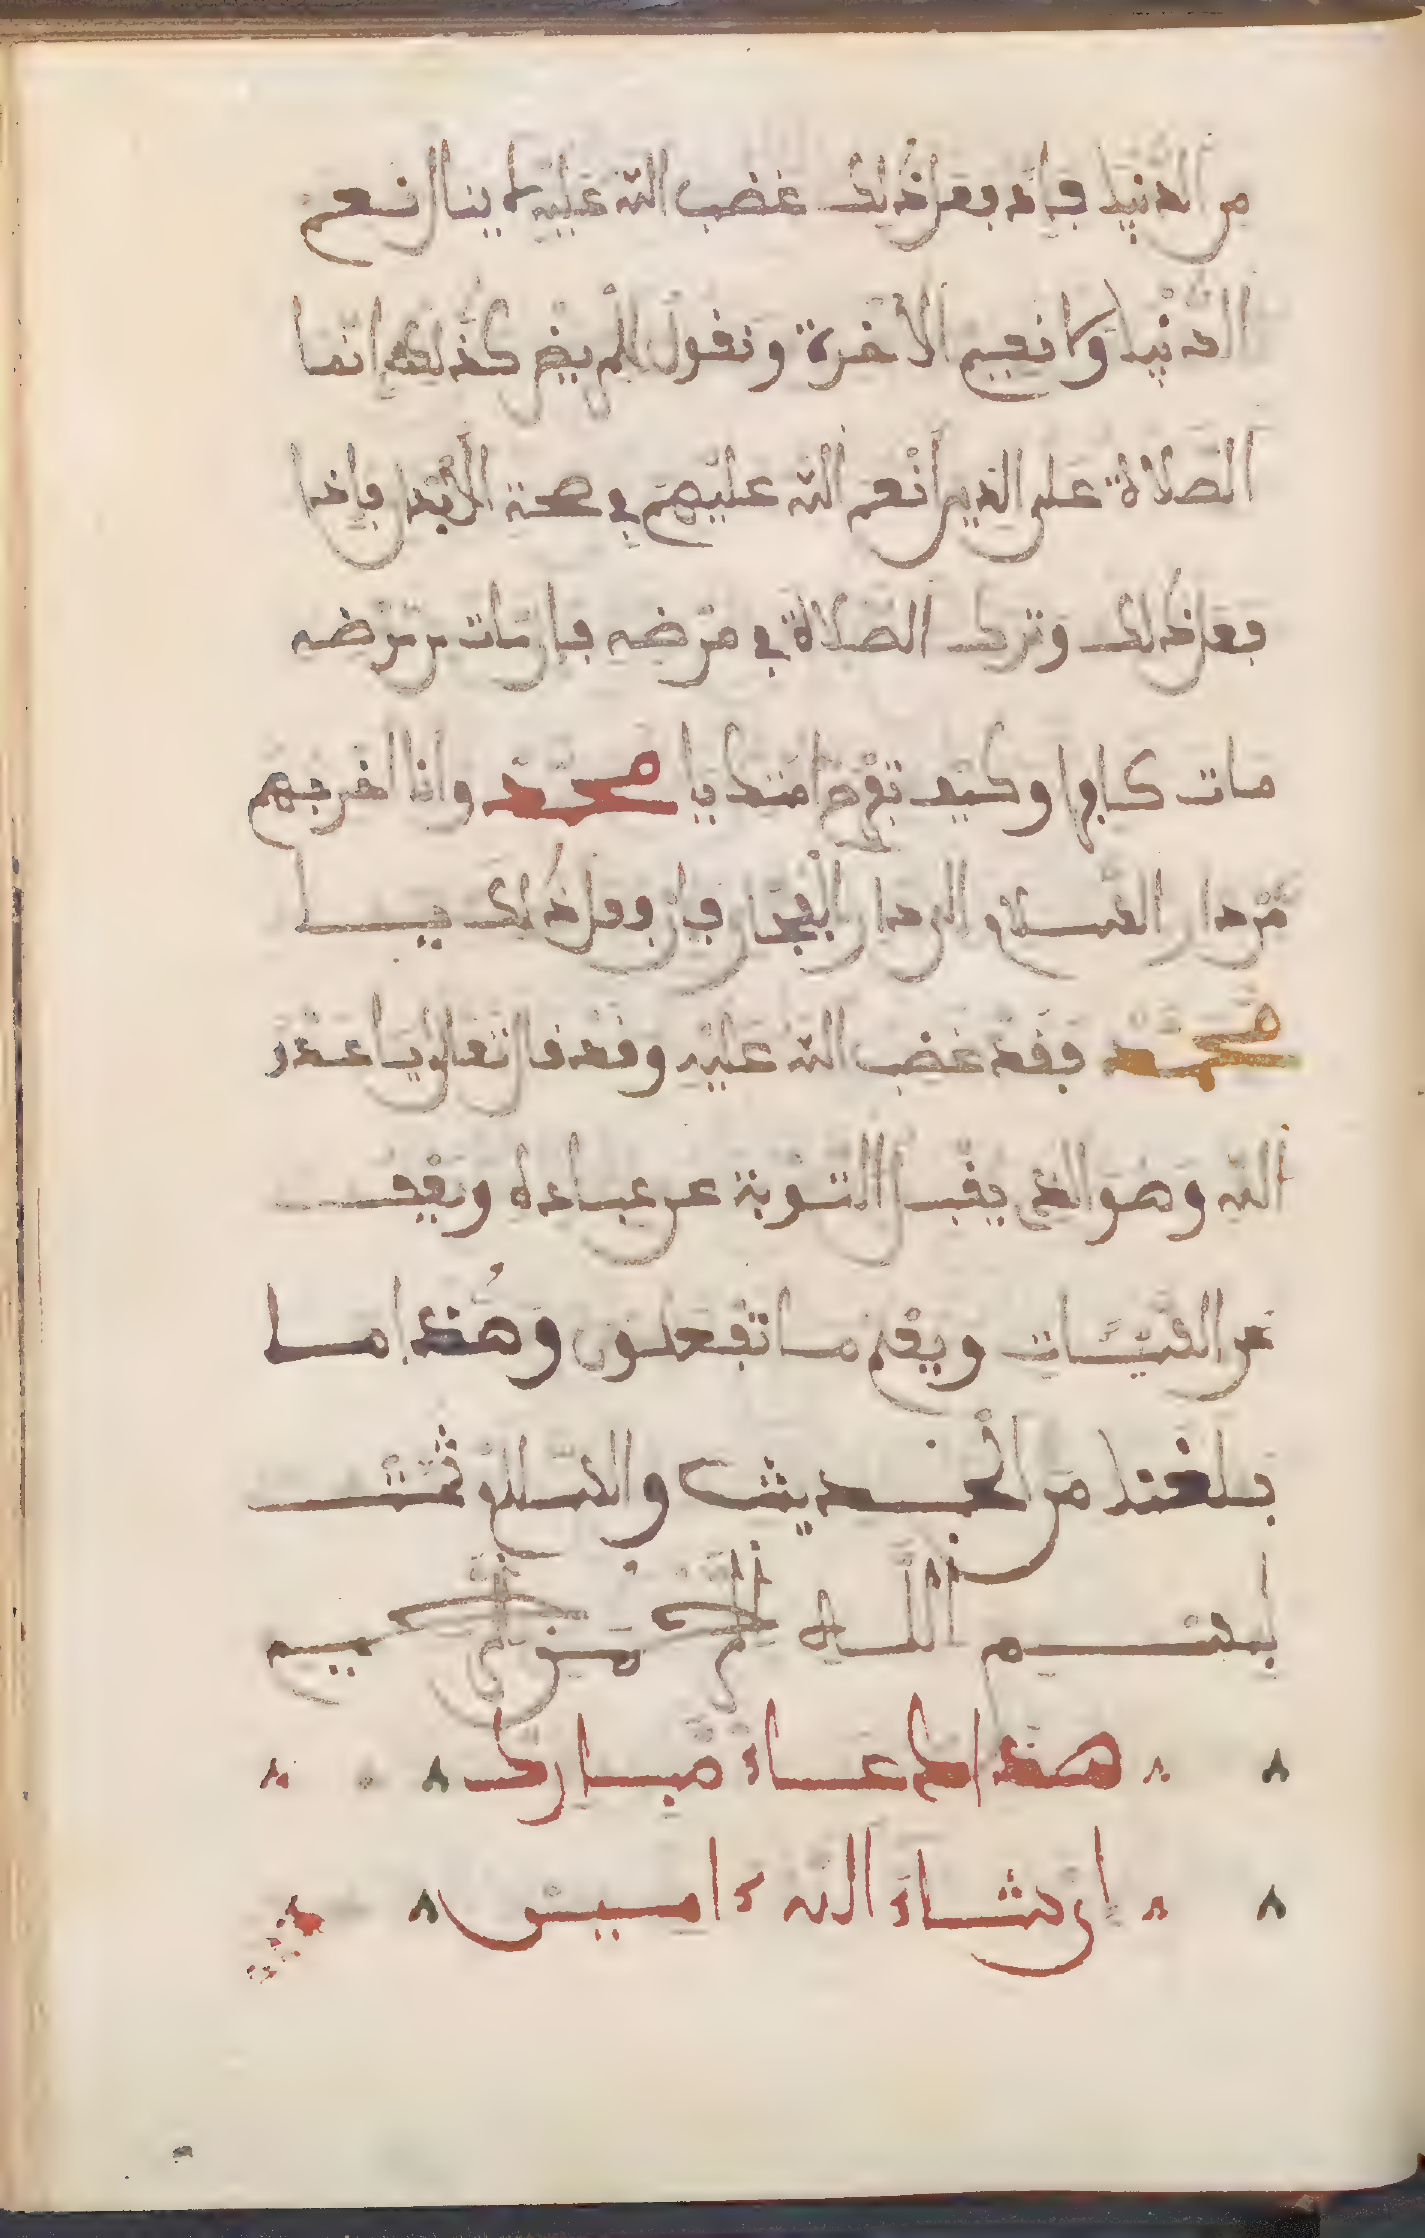 من الدنيا فإنه فعل ذلك غضب الله عليه لا ينال نعم
الدنيا ولا نعيم الاخرة ونقول للمريض كذلك انما
الصلاة على الذين أنعم الله عليهم في صحة الأبدان فإذا
فعل ذلك وترك الصلاة في مرضه فإن مات من مرضه
مات كافرا وكيف تفرح امتك يا محمد وانا اخرجهم
من دار السلام الى دار الفجار فإن فعل ذلك يا
محمد فقد غضب الله عليه وقد قال تعالى يا عدو
الله وهو الذي يقبل التوبة عن عباده ويعفـ
عن السيئات ويعلم ما تفعلون وهذا ما
بلغنا من الحديث والسلام تمت
بسم الله الرحمن الرحيم
هذا دعاء مبارك
ان شاء الله ءامين